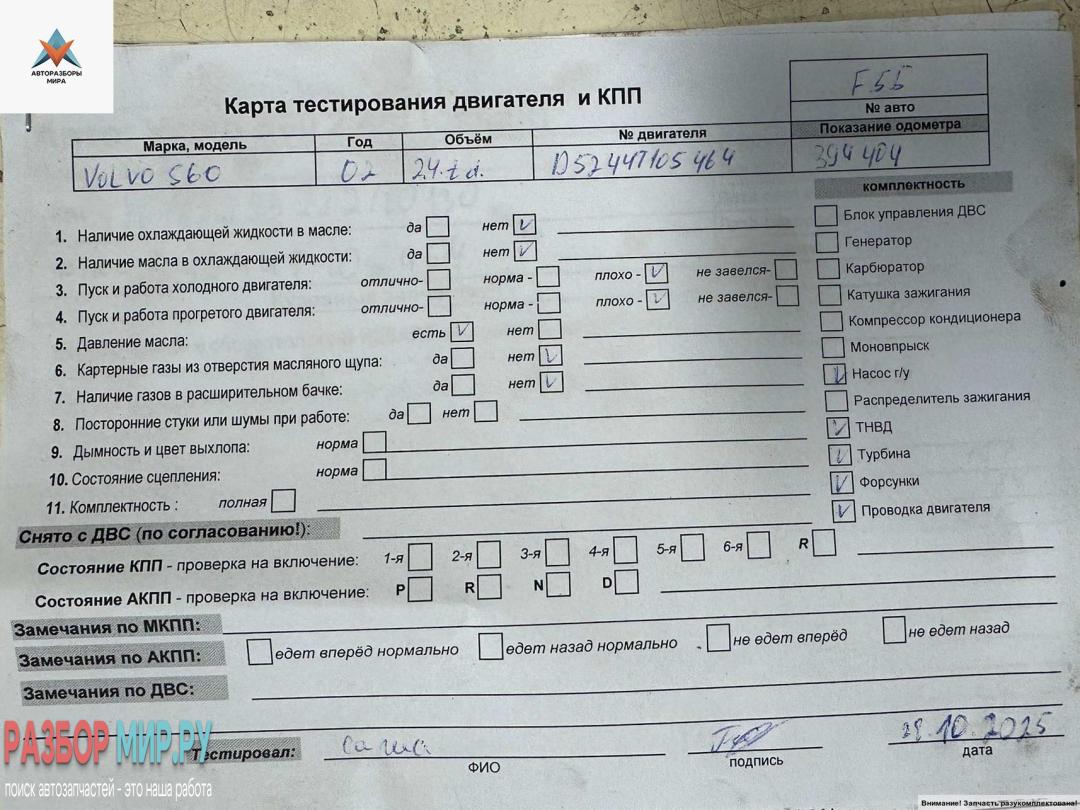 АВТОРАЗБОРЫ
МИРА
F55
№ авто
Карта тестирования двигателя и КПП
Марка, модель Год Объём № двигателя Показание одометра
VOLVO S60 02 2.4.t.d. D5244T105464 394404
комплектность
1. Наличие охлаждающей жидкости в масле: да нет
2. Наличие масла в охлаждающей жидкости: да нет
3. Пуск и работа холодного двигателя: отлично- норма - плохо - не завелся-
4. Пуск и работа прогретого двигателя: отлично- норма - плохо - не завелся-
5. Давление масла: есть нет
6. Картерные газы из отверстия масляного щупа: да нет
7. Наличие газов в расширительном бачке: да нет
8. Посторонние стуки или шумы при работе: да нет
9. Дымность и цвет выхлопа: норма
10. Состояние сцепления: норма
11. Комплектность : полная
Блок управления ДВС
Генератор
Карбюратор
Катушка зажигания
Компрессор кондиционера
Моновпрыск
Насос г/у
Распределитель зажигания
ТНВД
Турбина
Форсунки
Проводка двигателя
Снято с ДВС (по согласованию!):
Состояние КПП - проверка на включение: 1-я 2-я 3-я 4-я 5-я 6-я R
Состояние АКПП - проверка на включение: P R N D
Замечания по МКПП:
Замечания по АКПП: едет вперёд нормально едет назад нормально не едет вперёд не едет назад
Замечания по ДВС:
Тестировал: Саша 10.2025
ФИО подпись дата
РАЗБОРМИР.РУ
поиск автозапчастей - это наша работа
Внимание! Запчасть разукомплектована!